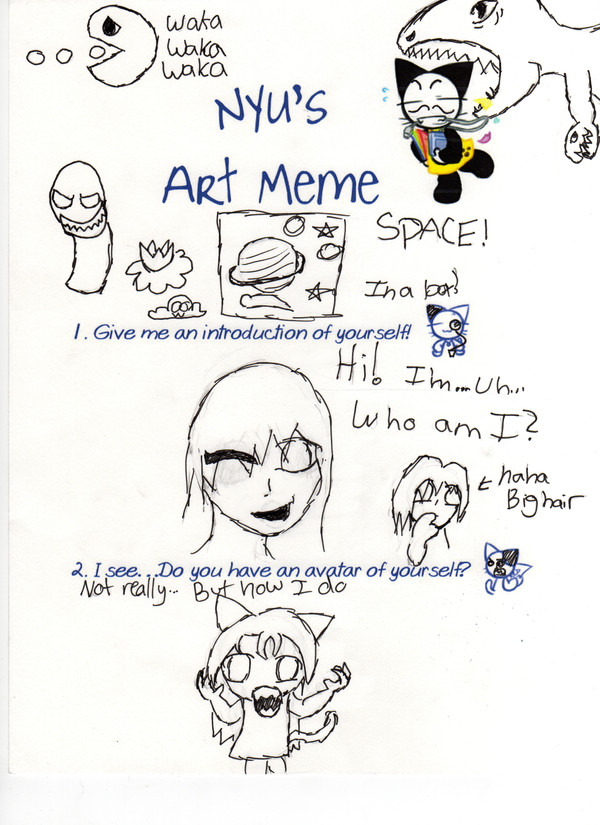 waka
waka
waka
NYU'S
ART MEME
SPACE!
In a box?
1. Give me an introduction of yourself!
Hi! I'm...uh...
Who am I?
haha
Big hair
2. I see...Do you have an avatar of yourself?
Not really... But now I do